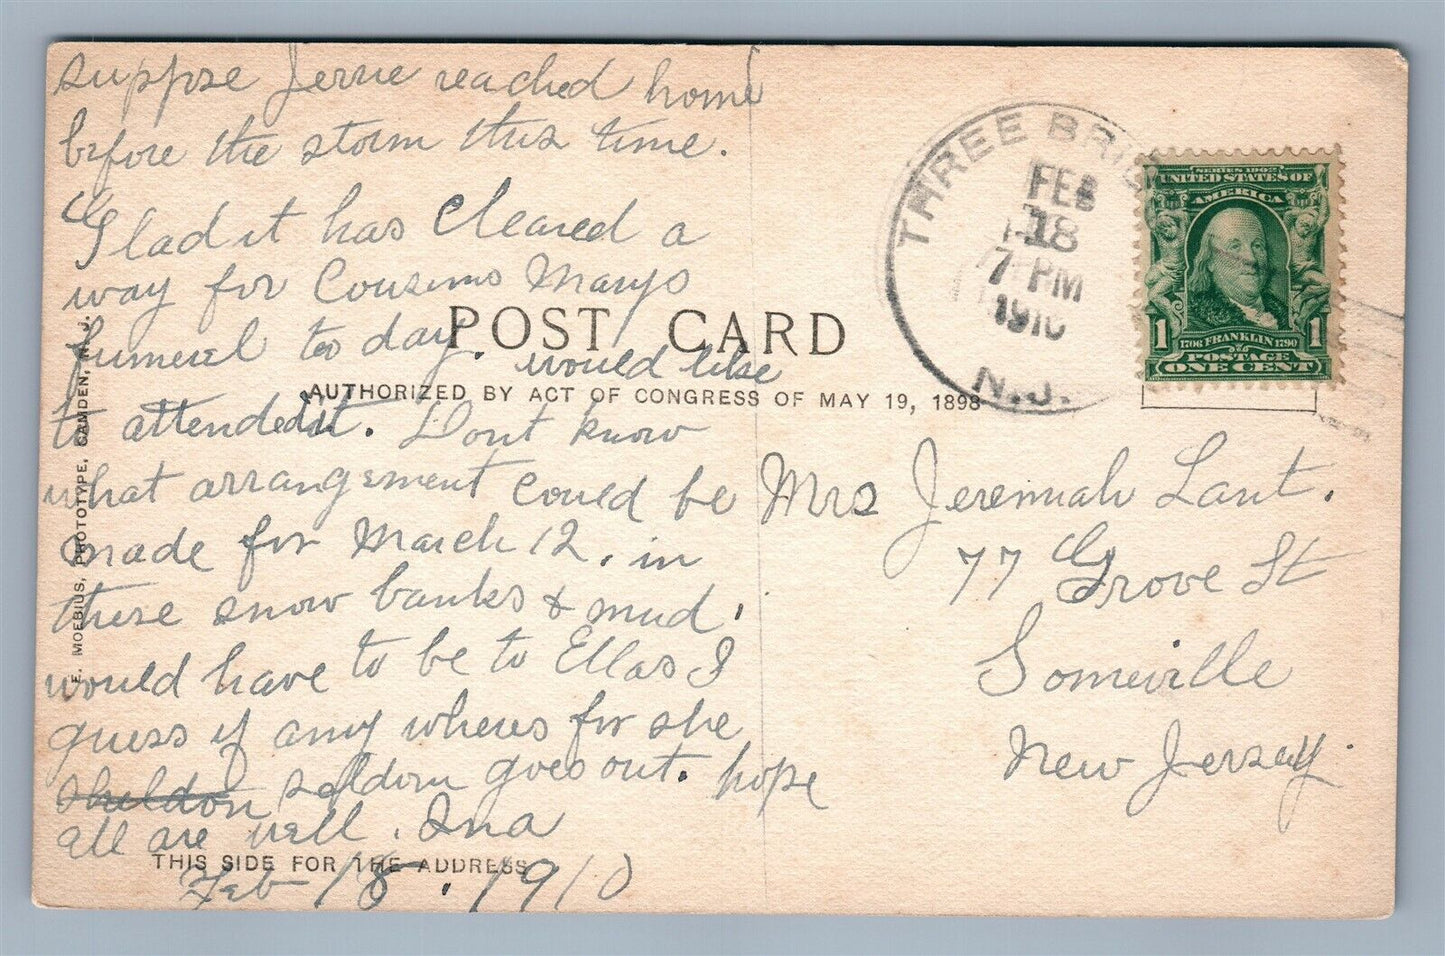 suppose Jerrie reached home
before the storm this time.
Glad it has cleared a
way for Cousins Marys
funeral to day. would like
to attended it. Dont know
what arrangement could be
made for March 12. in
these snow banks & mud.
would have to be to Ellas I
guess if any wheres for she
sheldon seldom goes out. hope
all are well. Ina
Feb 18. 1910
POST CARD
AUTHORIZED BY ACT OF CONGRESS OF MAY 19, 1898
THIS SIDE FOR THE ADDRESS
F. MOEBIUS, PHOTOTYPE, CAMDEN, N. J.
THREE BRID
FEB
18
7 PM
1910
N.J.
SERIES 1902
UNITED STATES OF
AMERICA
1 1
1706 FRANKLIN 1790
POSTAGE
ONE CENT
Mrs Jeremiah Lant.
77 Grove St
Somerville
New Jersey.